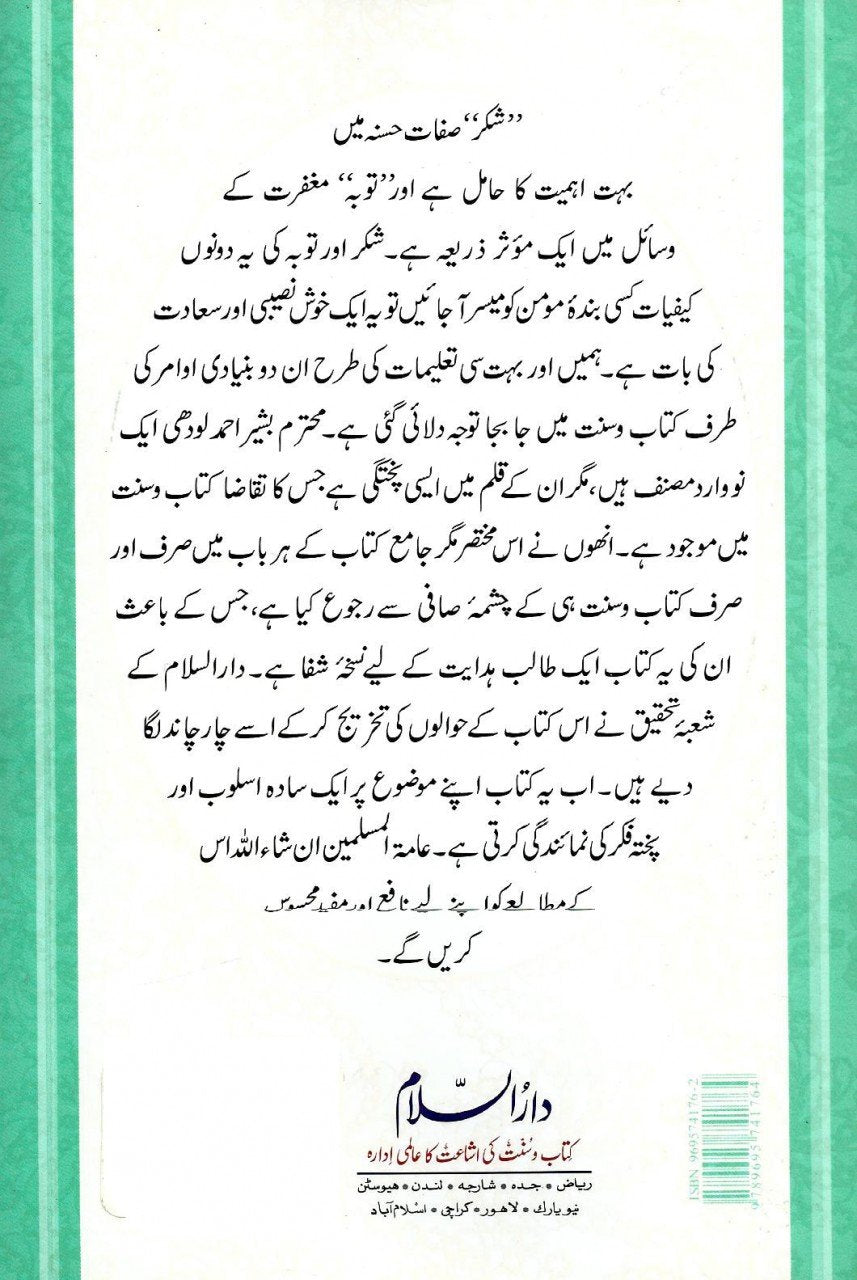 ”شکر“ صفات حسنہ میں
بہت اہمیت کا حامل ہے اور ”توبہ“ مغفرت کے
وسائل میں ایک مؤثر ذریعہ ہے۔ شکر اور توبہ کی یہ دونوں
کیفیات کسی بندۂ مومن کو میسر آ جائیں تو یہ ایک خوش نصیبی اور سعادت
کی بات ہے۔ ہمیں اور بہت سی تعلیمات کی طرح ان دو بنیادی اوامر کی
طرف کتاب و سنت میں جا بجا توجہ دلائی گئی ہے۔ محترم بشیر احمد لودھی ایک
نووارد مصنف ہیں، مگر ان کے قلم میں ایسی پختگی ہے جس کا تقاضا کتاب و سنت
میں موجود ہے۔ انھوں نے اس مختصر مگر جامع کتاب کے ہر باب میں صرف اور
صرف کتاب و سنت ہی کے چشمۂ صافی سے رجوع کیا ہے، جس کے باعث
ان کی یہ کتاب ایک طالب ہدایت کے لیے نسخۂ شفا ہے۔ دارالسلام کے
شعبۂ تحقیق نے اس کتاب کے حوالوں کی تخریج کر کے اسے چار چاند لگا
دیے ہیں۔ اب یہ کتاب اپنے موضوع پر ایک سادہ اسلوب اور
پختہ فکر کی نمائندگی کرتی ہے۔ عامۃ المسلمین ان شاء اللہ اس
کے مطالعے کو اپنے لیے نافع اور مفید محسوس
کریں گے۔
دارُالسّلام
کتاب و سُنّت کی اشاعت کا عالمی اِدارہ
ریاض • جدہ • شارجہ • لندن • ہیوسٹن
نیویارک • لاہور • کراچی • اسلام آباد
ISBN 969574176-2
9789695741764